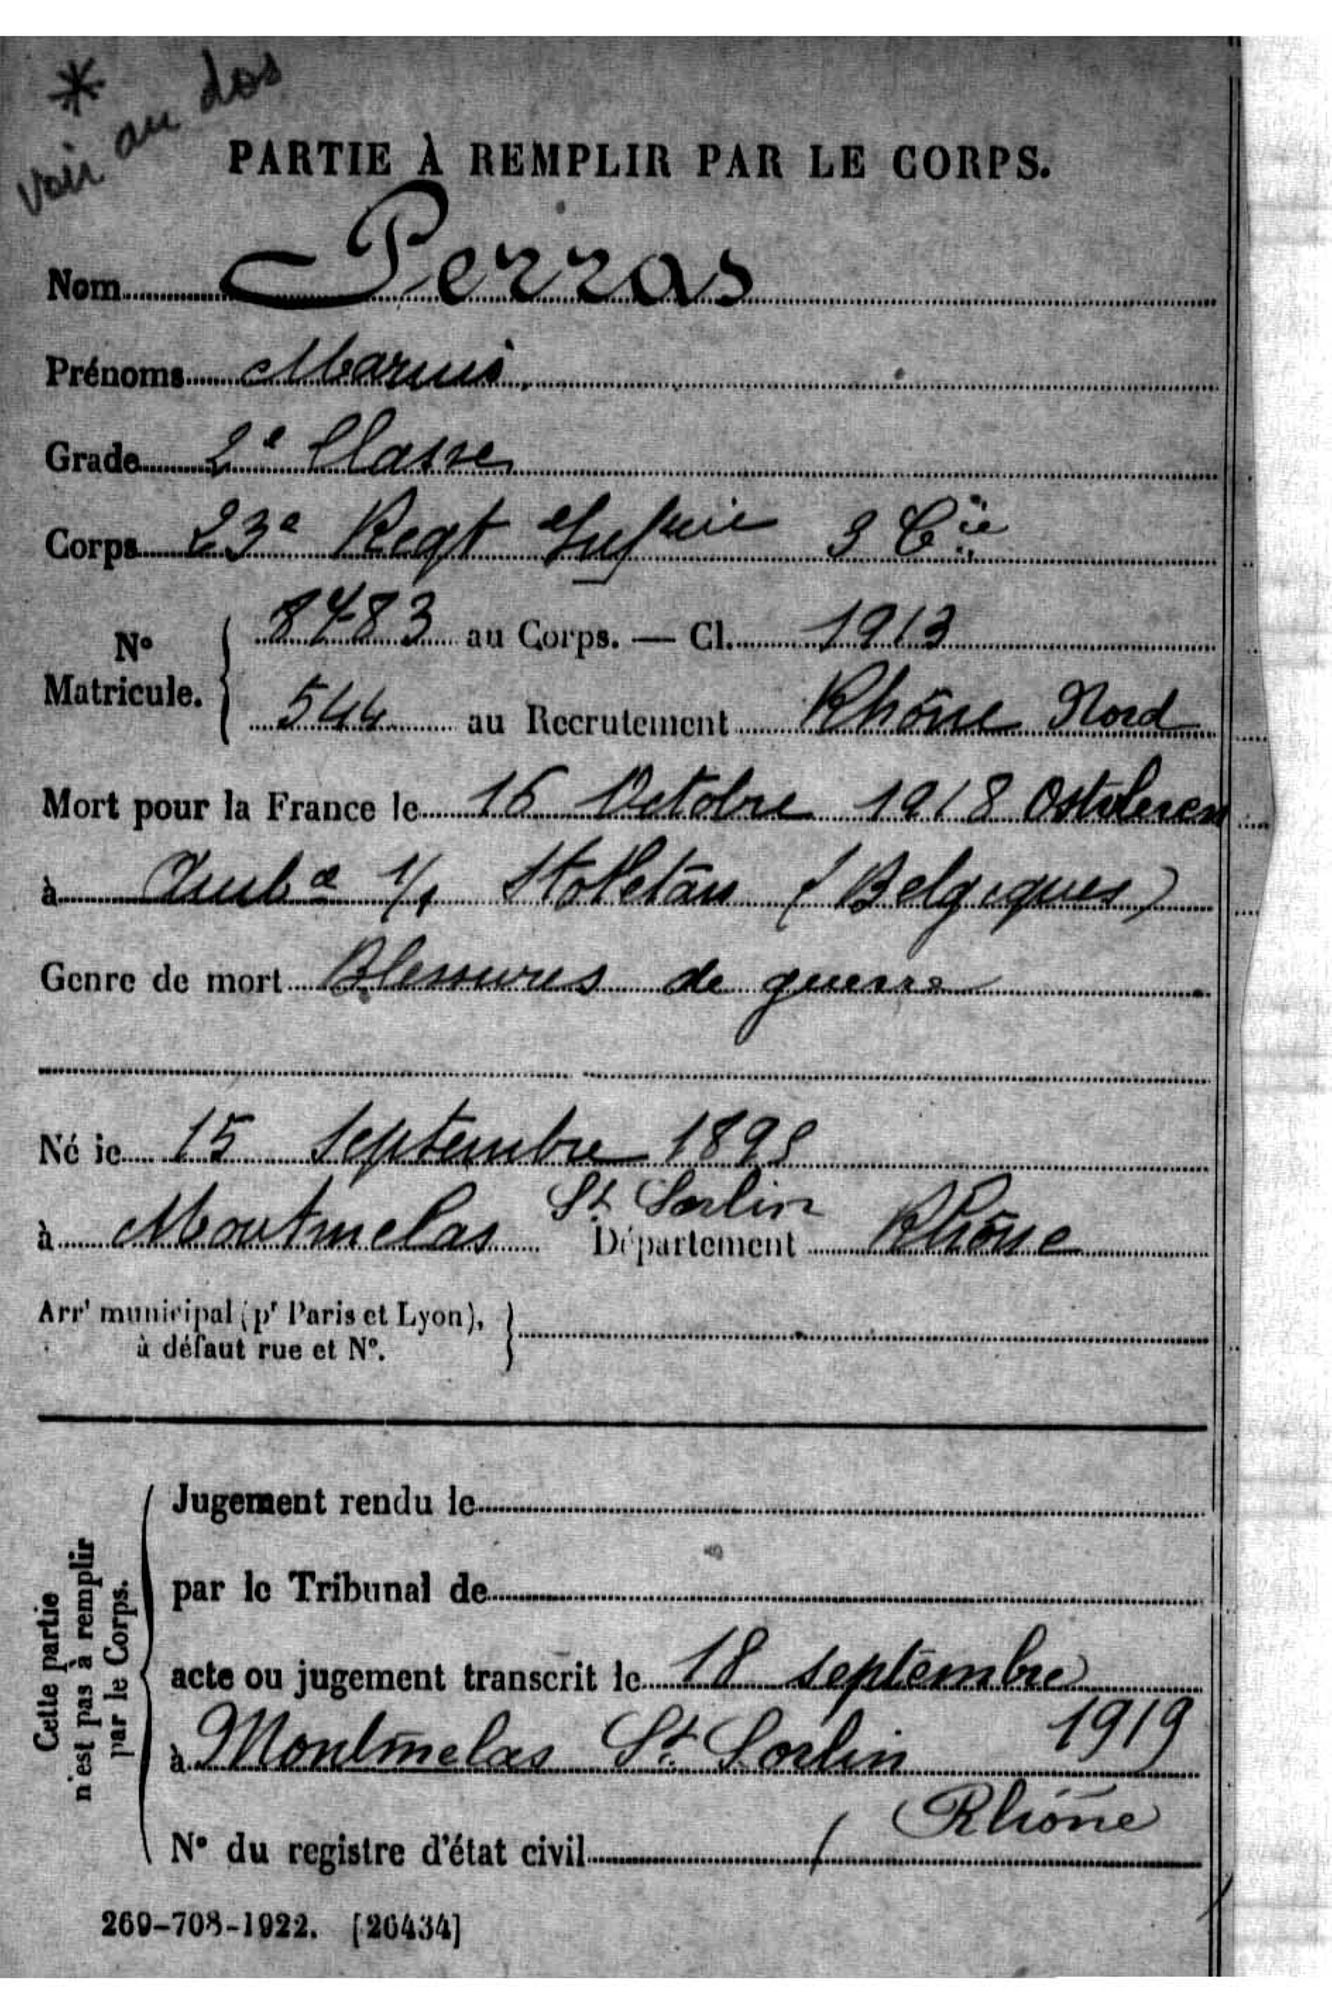 *
voir au dos
PARTIE À REMPLIR PAR LE CORPS.
Nom Perras
Prénoms Marius
Grade 2e Classe
Corps 23e Regt Infrie 3 Cie
No Matricule. 8483 au Corps. — Cl. 1913
544 au Recrutement Rhône Nord
Mort pour la France le 16 Octobre 1918
à Ambce 1/1 (Belgiques)
Genre de mort Blessures de guerre
Né le 15 Septembre 1893
à Montmelas St Sorlin Département Rhône
Arrt municipal (pr Paris et Lyon),
à défaut rue et No.
Cette partie
n'est pas à remplir
par le Corps.
Jugement rendu le
par le Tribunal de
acte ou jugement transcrit le 18 septembre
1919
à Montmelas St Sorlin
Rhône
No du registre d'état civil /
269-708-1922. [26434]